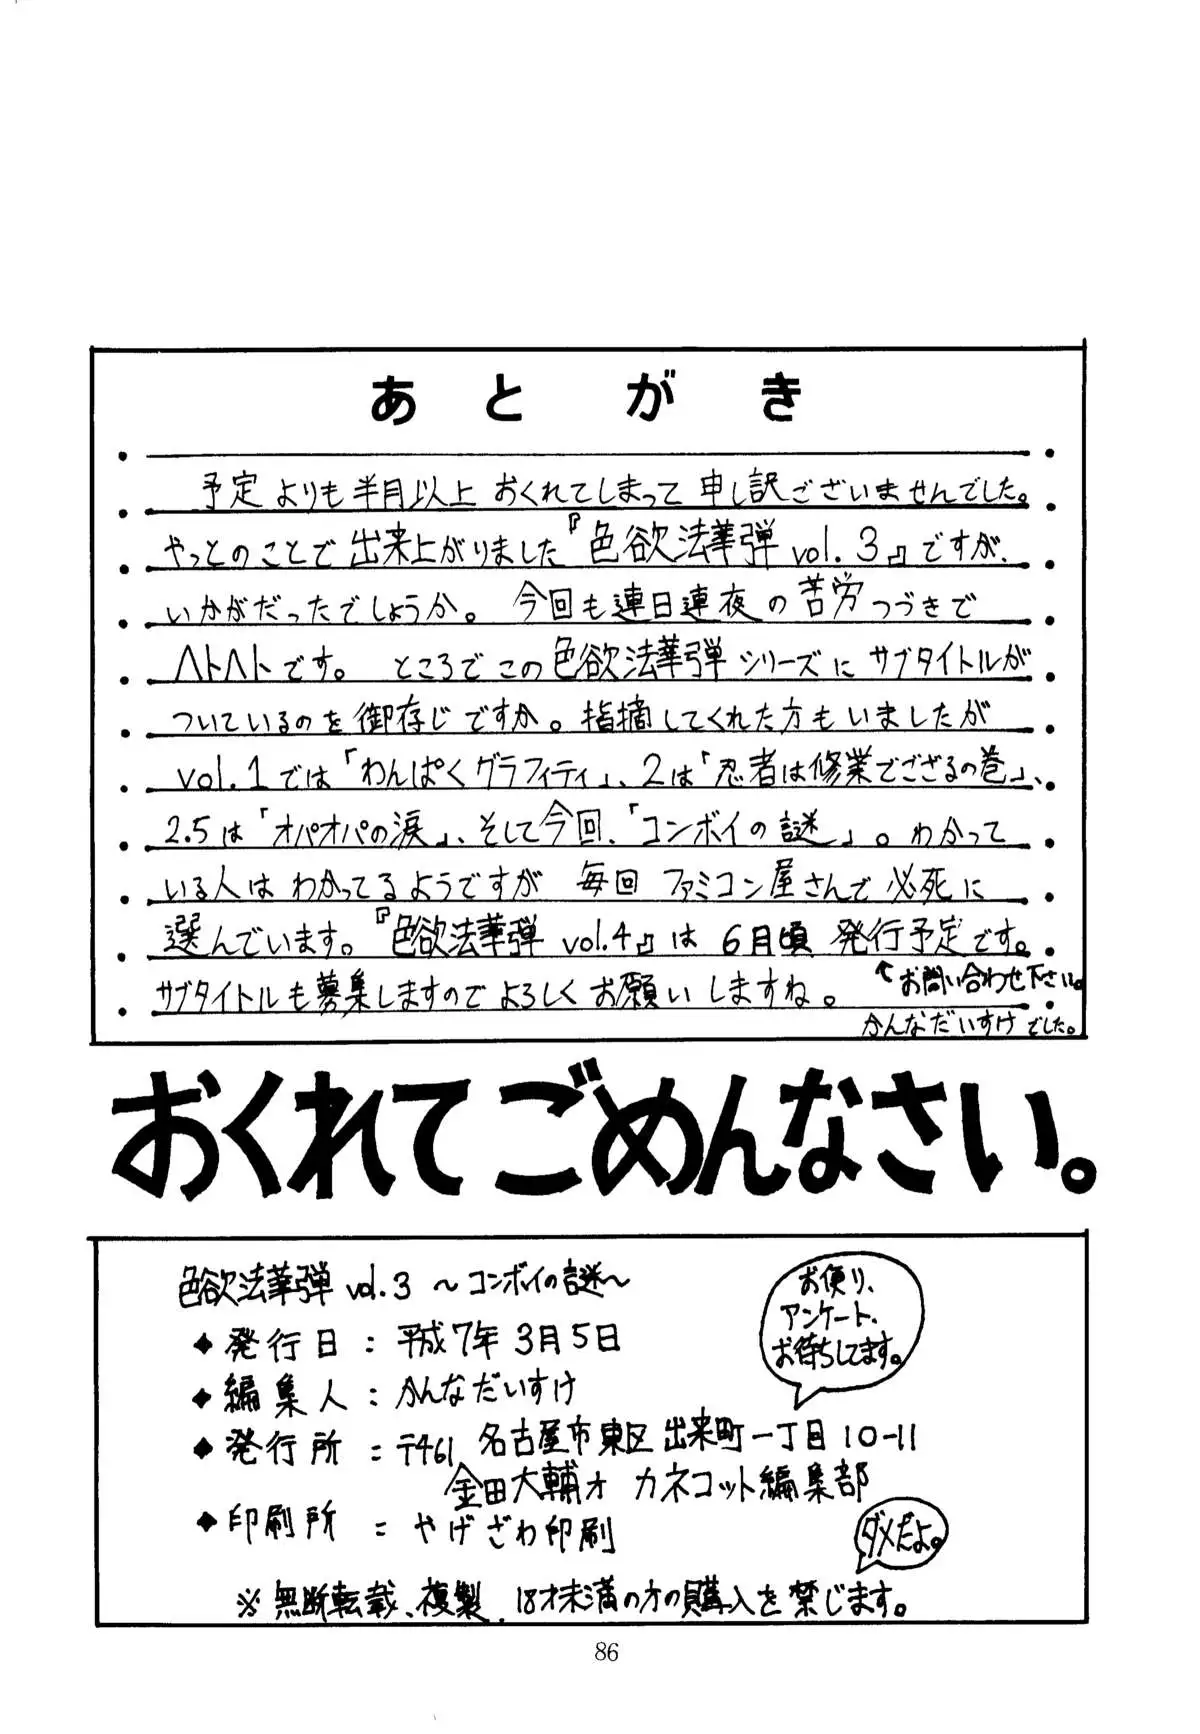 あとがき
予定よりも半月以上おくれてしまって申し訳ございませんでした。
やっとのことで出来上がりました『色欲法華弾 vol.3』ですが、
いかがだったでしょうか。今回も連日連夜の苦労つづきで
ヘトヘトです。ところでこの色欲法華弾シリーズにサブタイトルが
ついているのを御存じですか。指摘してくれた方もいましたが
vol.1では「わんぱくグラフィティ」、2は「忍者は修業でござるの巻」、
2.5は「オパオパの涙」、そして今回、「コンボイの謎」。わかって
いる人はわかってるようですが毎回ファミコン屋さんで必死に
選んでいます。『色欲法華弾 vol.4』は6月頃発行予定です。
↑お問い合わせ下さい。
サブタイトルも募集しますのでよろしくお願いしますね。
かんなだいすけでした。
おくれてごめんなさい。
色欲法華弾 vol.3 ～コンボイの謎～
お便り、
アンケート、
お待ちしてます。
◆発行日:平成7年3月5日
◆編集人:かんなだいすけ
◆発行所:〒461 名古屋市東区出来町一丁目10-11
金田大輔方 カネコット編集部
◆印刷所:やげざわ印刷
ダメだよ。
※無断転載、複製、18才未満の方の購入を禁じます。
86